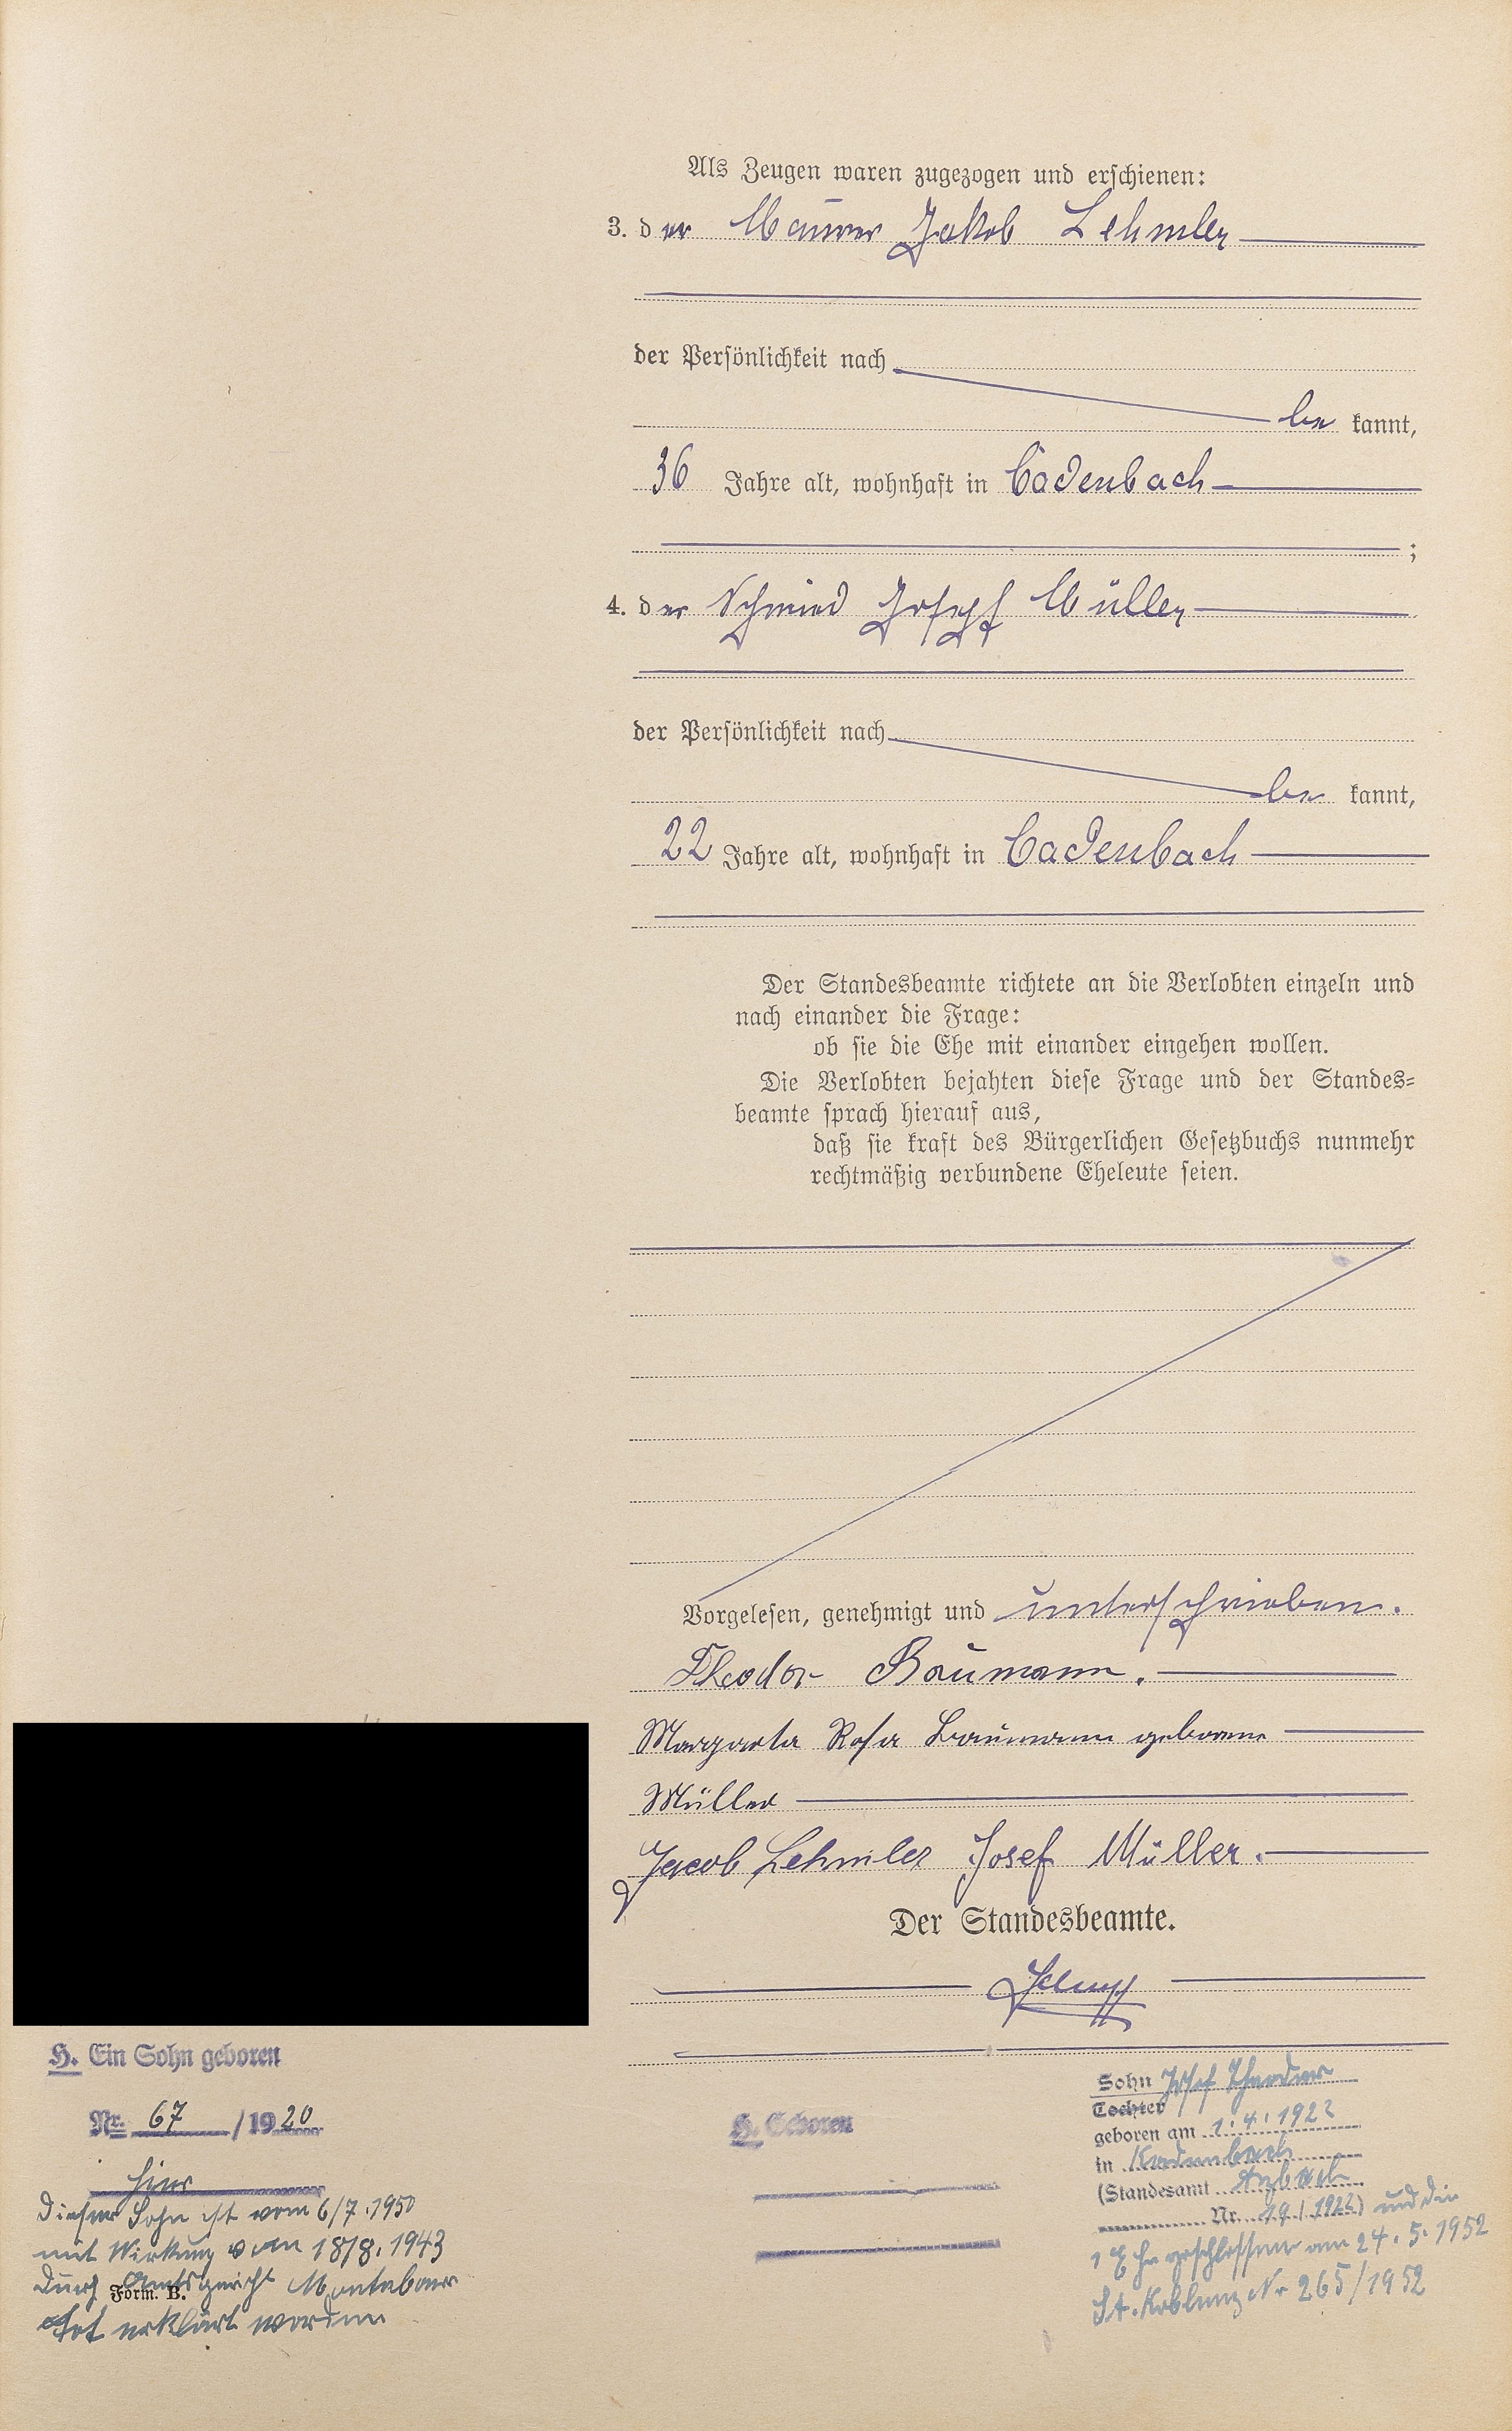 Als Zeugen waren zugezogen und erschienen:
3. der Maurer Jakob Lehmler
der Persönlichkeit nach
be kannt,
36 Jahre alt, wohnhaft in Cadenbach
;
4. der Schmied Joseph Müller
der Persönlichkeit nach
be kannt,
22 Jahre alt, wohnhaft in Cadenbach
Der Standesbeamte richtete an die Verlobten einzeln und
nach einander die Frage:
ob sie die Ehe mit einander eingehen wollen.
Die Verlobten bejahten diese Frage und der Standes-
beamte sprach hierauf aus,
daß sie kraft des Bürgerlichen Gesetzbuchs nunmehr
rechtmäßig verbundene Eheleute seien.
Vorgelesen, genehmigt und unterschrieben.
Theodor Baumann.
Margareta Rosa Baumann geborene
Müller
Jacob Lehmler Josef Müller.
Der Standesbeamte.
H. Ein Sohn geboren
Nr. 67 /1920
hier
Dieser Sohn ist vom 6/7.1950
mit Wirkung vom 18/8.1943
durch Amtsgericht Montabaur
Tot erklärt worden
Form. B.
H. Geboren
Sohn Josef Theodor
Tochter
geboren am 1.4.1922
in Kadenbach
(Standesamt Arzbach
Nr. 19/1922) und die
1 Ehe geschlossen am 24.5.1952
St. Koblenz Nr 265/1952